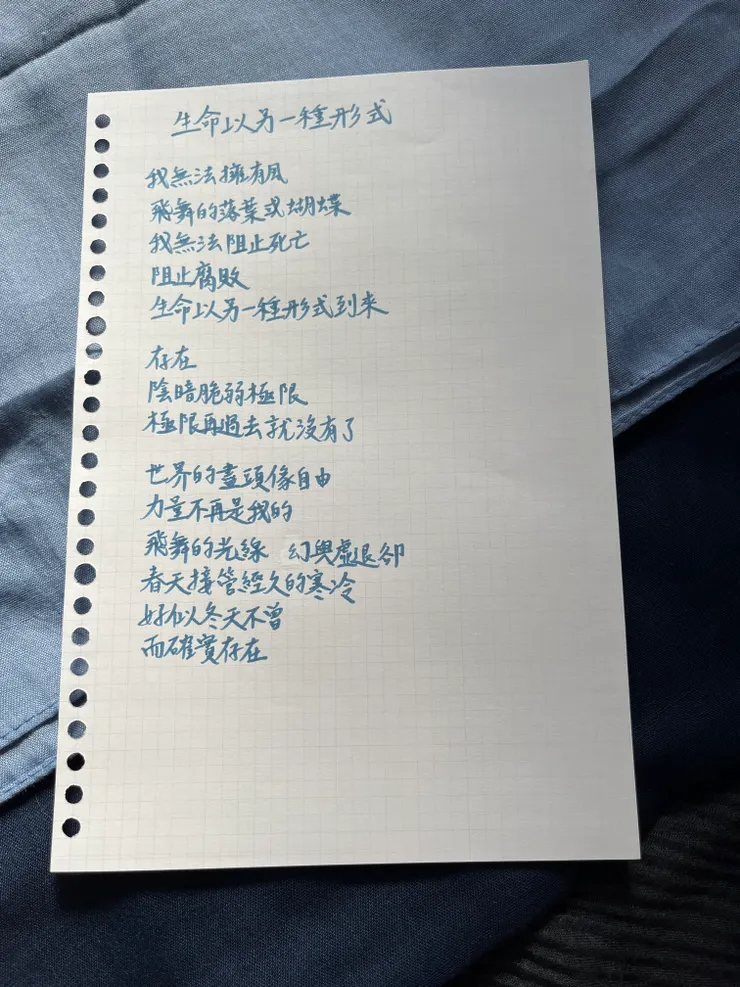 生命以另一種形式
我無法擁有風
飛舞的落葉或蝴蝶
我無法阻止死亡
阻止腐敗
生命以另一種形式到來
存在
陰暗脆弱極限
極限再過去就沒有了
世界的盡頭像自由
力量不再是我的
飛舞的光線 幻與虛退卻
春天接管經久的寒冷
好似冬天不曾
而確實存在